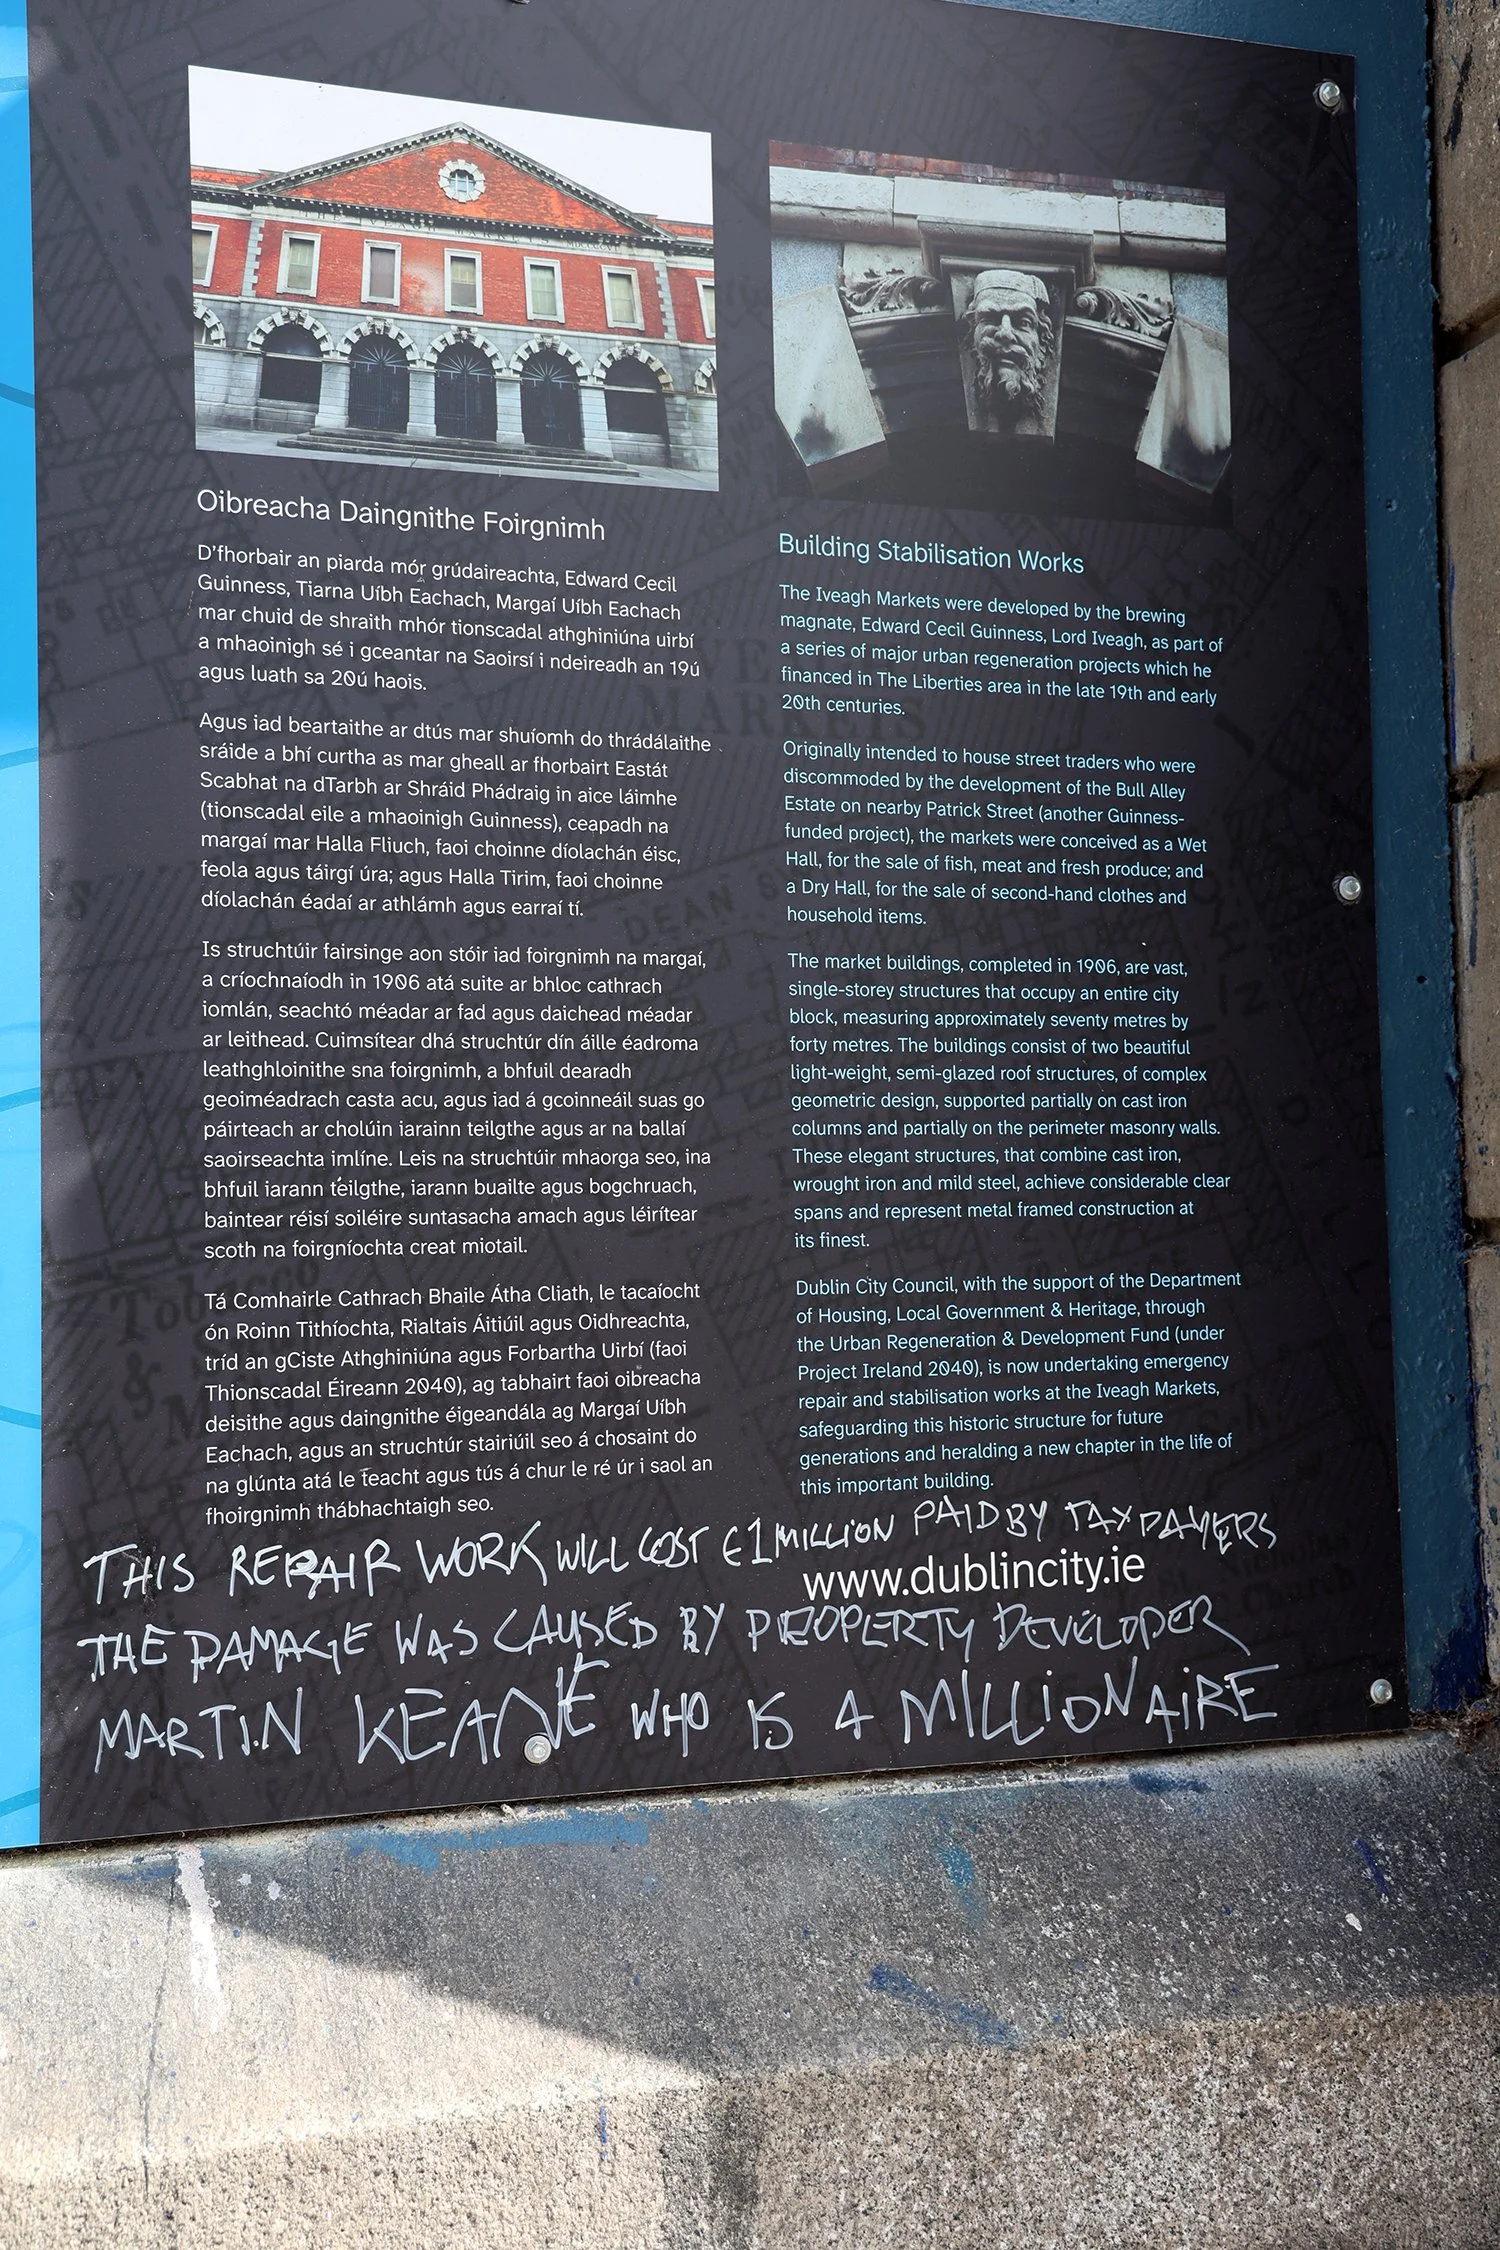 Oibreacha Daingnithe Foirgnimh
D'fhorbair an piarda mór grúdaireachta, Edward Cecil
Guinness, Tiarna Uíbh Eachach, Margaí Uíbh Eachach
mar chuid de shraith mhór tionscadal athghiniúna uirbí
a mhaoinigh sé i gceantar na Saoirsí i ndeireadh an 19ú
agus luath sa 20ú haois.
Agus iad beartaithe ar dtús mar shuíomh do thrádálaithe
sráide a bhí curtha as mar gheall ar fhorbairt Eastát
Scabhat na dTarbh ar Shráid Phádraig in aice láimhe
(tionscadal eile a mhaoinigh Guinness), ceapadh na
margaí mar Halla Fliuch, faoi choinne díolachán éisc,
feola agus táirgí úra; agus Halla Tirim, faoi choinne
díolachán éadaí ar athlámh agus earraí tí.
Is struchtúir fairsinge aon stóir iad foirgnimh na margaí,
a críochnaíodh in 1906 atá suite ar bhloc cathrach
iomlán, seachtó méadar ar fad agus daichead méadar
ar leithead. Cuimsítear dhá struchtúr dín áille éadroma
leathghloinithe sna foirgnimh, a bhfuil dearadh
geoiméadrach casta acu, agus iad á gcoinneáil suas go
páirteach ar cholúin iarainn teilgthe agus ar na ballaí
saoirseachta imlíne. Leis na struchtúir mhaorga seo, ina
bhfuil iarann teilgthe, iarann buailte agus bogchruach,
baintear réisí soiléire suntasacha amach agus léirítear
scoth na foirgníochta creat miotail.
Tá Comhairle Cathrach Bhaile Átha Cliath, le tacaíocht
ón Roinn Tithíochta, Rialtais Áitiúil agus Oidhreachta,
tríd an gCiste Athghiniúna agus Forbartha Uirbí (faoi
Thionscadal Éireann 2040), ag tabhairt faoi oibreacha
deisithe agus daingnithe éigeandála ag Margaí Uíbh
Eachach, agus an struchtúr stairiúil seo á chosaint do
na glúnta atá le teacht agus tús á chur le ré úr i saol an
fhoirgnimh thábhachtaigh seo.
Building Stabilisation Works
The Iveagh Markets were developed by the brewing
magnate, Edward Cecil Guinness, Lord Iveagh, as part of
a series of major urban regeneration projects which he
financed in The Liberties area in the late 19th and early
20th centuries.
Originally intended to house street traders who were
discommoded by the development of the Bull Alley
Estate on nearby Patrick Street (another Guinness-
funded project), the markets were conceived as a Wet
Hall, for the sale of fish, meat and fresh produce; and
a Dry Hall, for the sale of second-hand clothes and
household items.
The market buildings, completed in 1906, are vast,
single-storey structures that occupy an entire city
block, measuring approximately seventy metres by
forty metres. The buildings consist of two beautiful
light-weight, semi-glazed roof structures, of complex
geometric design, supported partially on cast iron
columns and partially on the perimeter masonry walls.
These elegant structures, that combine cast iron,
wrought iron and mild steel, achieve considerable clear
spans and represent metal framed construction at
its finest.
Dublin City Council, with the support of the Department
of Housing, Local Government & Heritage, through
the Urban Regeneration & Development Fund (under
Project Ireland 2040), is now undertaking emergency
repair and stabilisation works at the Iveagh Markets,
safeguarding this historic structure for future
generations and heralding a new chapter in the life of
this important building.
THIS REPAIR WORK WILL COST €1 MILLION PAID BY TAXPAYERS
www.dublincity.ie
THE DAMAGE WAS CAUSED BY PROPERTY DEVELOPER
MARTIN KEANE WHO IS A MILLIONAIRE